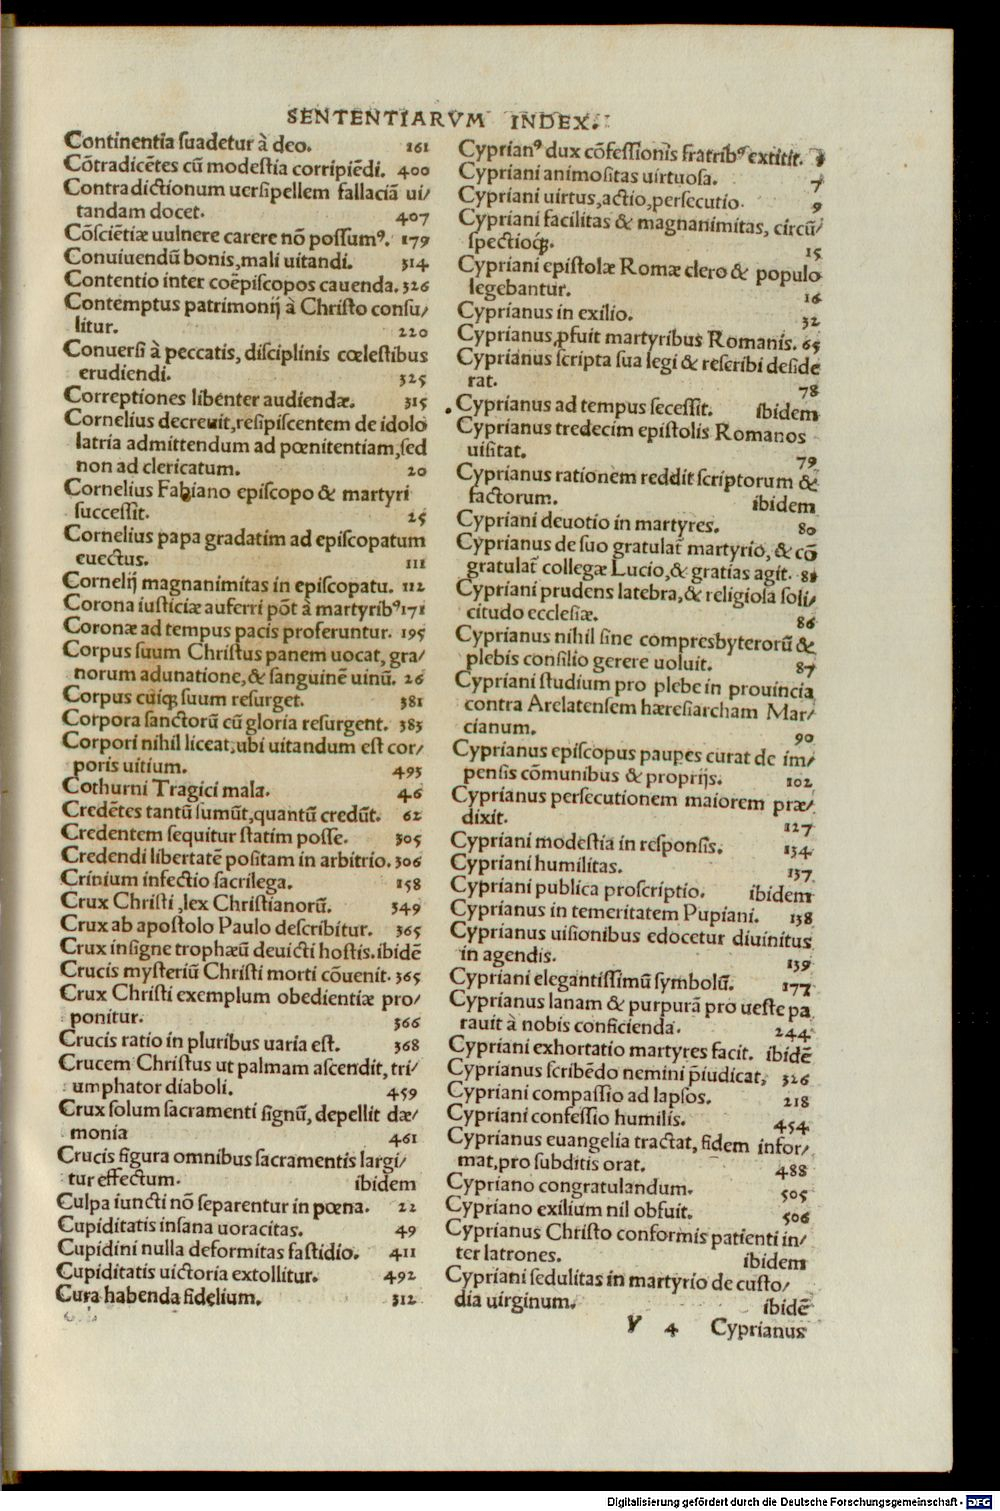 SENTENTIARVM INDEX.
Continentia ſuadetur à deo. 161
Cõtradicẽtes cũ modeſtia corripiẽdi. 400
Contradictionum uerſipellem fallaciã ui/
tandam docet. 407
Cõſciẽtiæ uulnere carere nõ poſſumꝰ. 179
Conuiuendũ bonis,mali uitandi. 314
Contentio inter coëpiſcopos cauenda. 326
Contemptus patrimonij à Chriſto conſu/
litur. 220
Conuerſi à peccatis, diſciplinis cœleſtibus
erudiendi. 325
Correptiones libenter audiendæ. 315
Cornelius decreuit,reſipiſcentem de idolo
latria admittendum ad pœnitentiam,ſed
non ad clericatum. 20
Cornelius Fabiano epiſcopo & martyri
ſucceſſit. 25
Cornelius papa gradatim ad epiſcopatum
euectus. 111
Cornelij magnanimitas in epiſcopatu. 112
Corona iuſticiæ auferri põt à martyribꝰ 171
Coronæ ad tempus pacis proferuntur. 195
Corpus ſuum Chriſtus panem uocat, gra/
norum adunatione,& ſanguinẽ uinũ. 26
Corpus cuiqꝫ ſuum reſurget. 381
Corpora ſanctorũ cũ gloria reſurgent. 383
Corpori nihil liceat,ubi uitandum eſt cor/
poris uitium. 493
Cothurni Tragici mala. 46
Credẽtes tantũ ſumũt,quantũ credũt. 62
Credentem ſequitur ſtatim poſſe. 305
Credendi libertatẽ poſitam in arbitrio. 306
Crinium infectio ſacrilega. 158
Crux Chriſti ,lex Chriſtianorũ. 349
Crux ab apoſtolo Paulo deſcribitur. 365
Crux inſigne trophæũ deuicti hoſtis. ibidẽ
Crucis myſteriũ Chriſti morti cõuenit. 365
Crux Chriſti exemplum obedientiæ pro/
ponitur. 366
Crucis ratio in pluribus uaria eſt. 368
Crucem Chriſtus ut palmam aſcendit, tri/
umphator diaboli. 459
Crux ſolum ſacramenti ſignũ, depellit dæ/
monia 461
Crucis figura omnibus ſacramentis largi/
tur effectum. ibidem
Culpa iuncti nõ ſeparentur in pœna. 22
Cupiditatis inſana uoracitas. 49
Cupidini nulla deformitas faſtidio. 411
Cupiditatis uictoria extollitur. 492
Cura habenda fidelium. 312
Cyprianꝰ dux cõfeſſionis fratribꝰ extitit.
Cypriani animoſitas uirtuoſa. 7
Cypriani uirtus,actio,perſecutio. 9
Cypriani facilitas & magnanimitas, circũ/
ſpectioqꝫ. 15
Cypriani epiſtolæ Romæ clero & populo
legebantur. 16
Cyprianus in exilio. 32
Cyprianus ꝓfuit martyribus Romanis. 65
Cyprianus ſcripta ſua legi & reſcribi deſide
rat. 78
Cyprianus ad tempus ſeceſſit. ibidem
Cyprianus tredecim epiſtolis Romanos
uiſitat. 79
Cyprianus rationem reddit ſcriptorum &
factorum. ibidem
Cypriani deuotio in martyres. 80
Cyprianus de ſuo gratulat̃ martyrio, & cõ
gratulat̃ collegæ Lucio,& gratias agit. 81
Cypriani prudens latebra,& religioſa ſoli/
citudo eccleſiæ. 86
Cyprianus nihil ſine compresbyterorũ &
plebis conſilio gerere uoluit. 87
Cypriani ſtudium pro plebe in prouincia
contra Arelatenſem hæreſiarcham Mar/
cianum. 90
Cyprianus epiſcopus paupes curat de im/
penſis cõmunibus & proprijs. 102
Cyprianus perſecutionem maiorem præ/
dixit. 127
Cypriani modeſtia in reſponſis. 134
Cypriani humilitas. 137
Cypriani publica proſcriptio. ibidem
Cyprianus in temeritatem Pupiani. 138
Cyprianus uiſionibus edocetur diuinitus
in agendis. 139
Cypriani elegantiſſimũ ſymbolũ. 177
Cyprianus lanam & purpurã pro ueſte pa
rauit à nobis conficienda. 244
Cypriani exhortatio martyres facit. ibidẽ
Cyprianus ſcribẽdo nemini p̃iudicat, 326
Cypriani compaſſio ad lapſos. 218
Cypriani confeſſio humilis. 454
Cyprianus euangelia tractat, fidem infor/
mat,pro ſubditis orat. 488
Cypriano congratulandum. 505
Cypriano exilium nil obfuit. 506
Cyprianus Chriſto conformis patienti in/
ter latrones. ibidem
Cypriani ſedulitas in martyrio de cuſto/
dia uirginum. ibidẽ
Y 4 Cyprianus
Digitalisierung gefördert durch die Deutsche Forschungsgemeinschaft - DFG